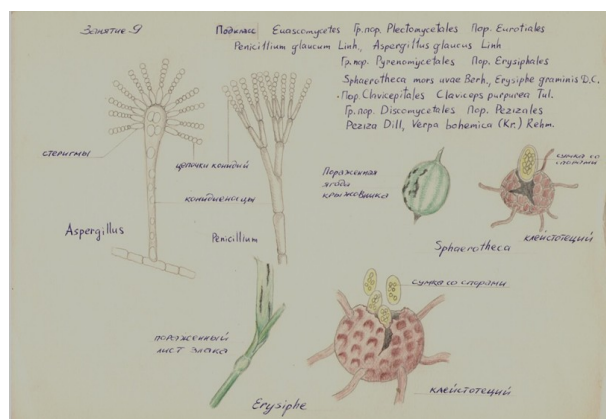 Занятие 9
Подкласс Euascomycetes Гр.пор. Plectomycetales Пор. Eurotiales
Penicillium glaucum Linh., Aspergillus glaucus Linh
Гр.пор. Pyrenomycetales Пор. Erysiphales
Sphaerotheca mors uvae Berh., Erysiphe graminis D.C.
Пор. Clavicepitales Claviceps purpurea Tul.
Гр.пор. Discomycetales Пор. Pezizales
Peziza Dill, Verpa bohemica (Kr.) Rehm.
стеригмы
цепочки конидий
конидиеносцы
Aspergillus
Penicillium
Пораженная
ягода
крыжовника
сумка со
спорами
Sphaerotheca
клейстотеций
пораженный
лист злака
Erysiphe
сумка со спорами
клейстотеций